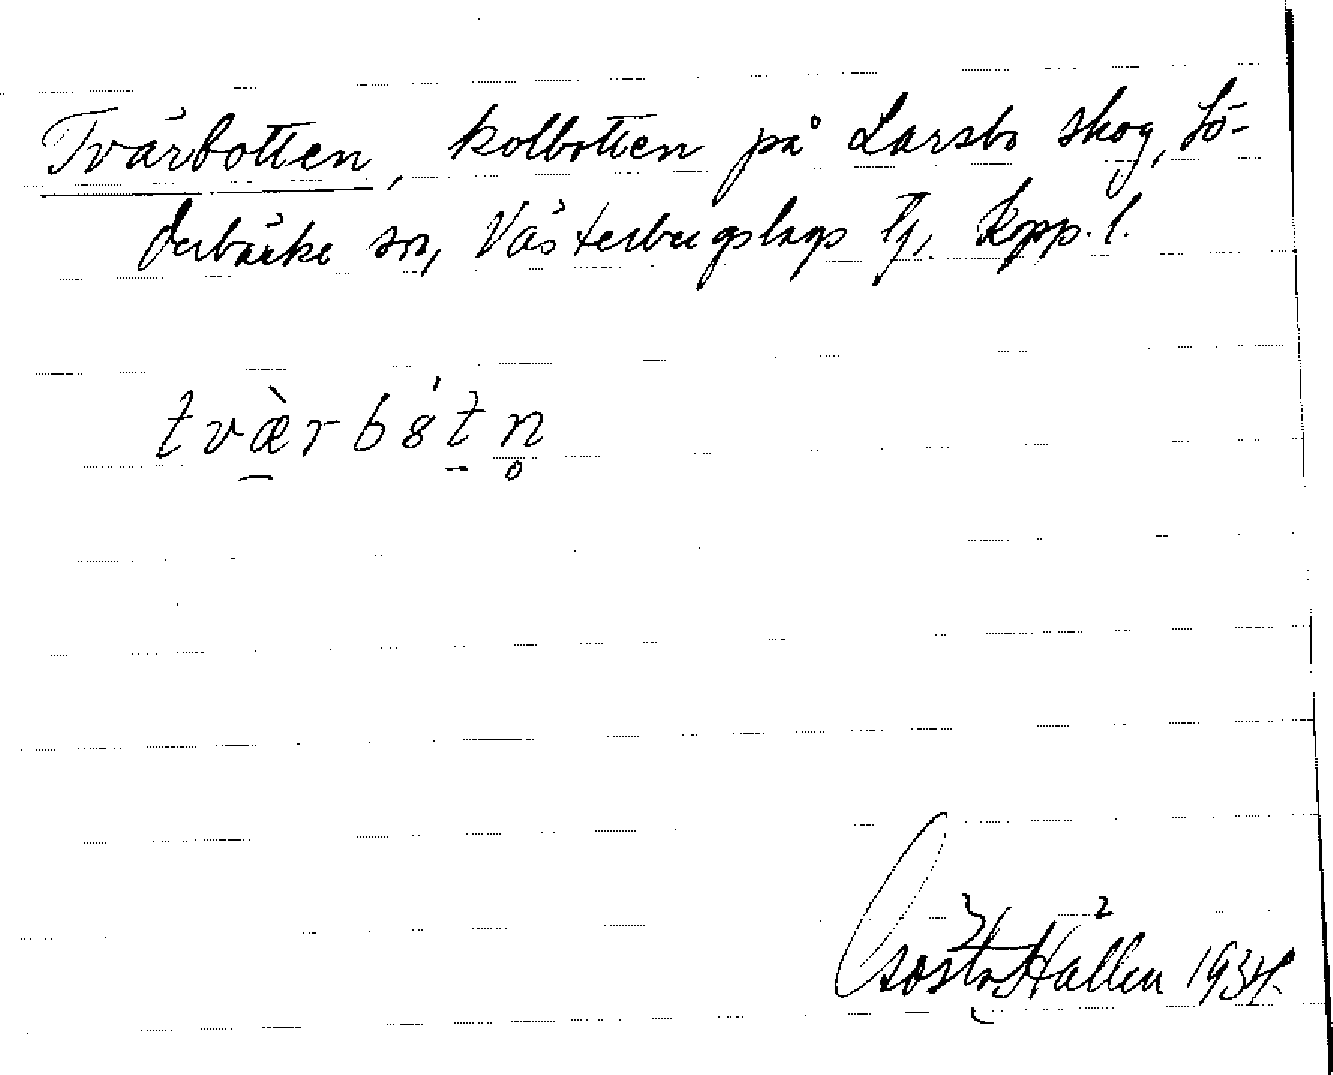 Tvärbotten, kolbotten på Larsbo skog, Sö-
derbärke sn, Västerbergslags tg, Kopp. l.
tvæ̀rbȣ́tn̥
Gösta Hallen 1934.